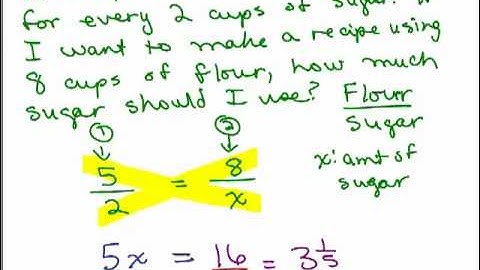 for every 2 cups of sugar. If
I want to make a recipe using
8 cups of flour, how much
sugar should I use? Flour
Sugar
① ②
x: amt of
sugar
5/2 = 8/x
5x = 16 = 3 1/5